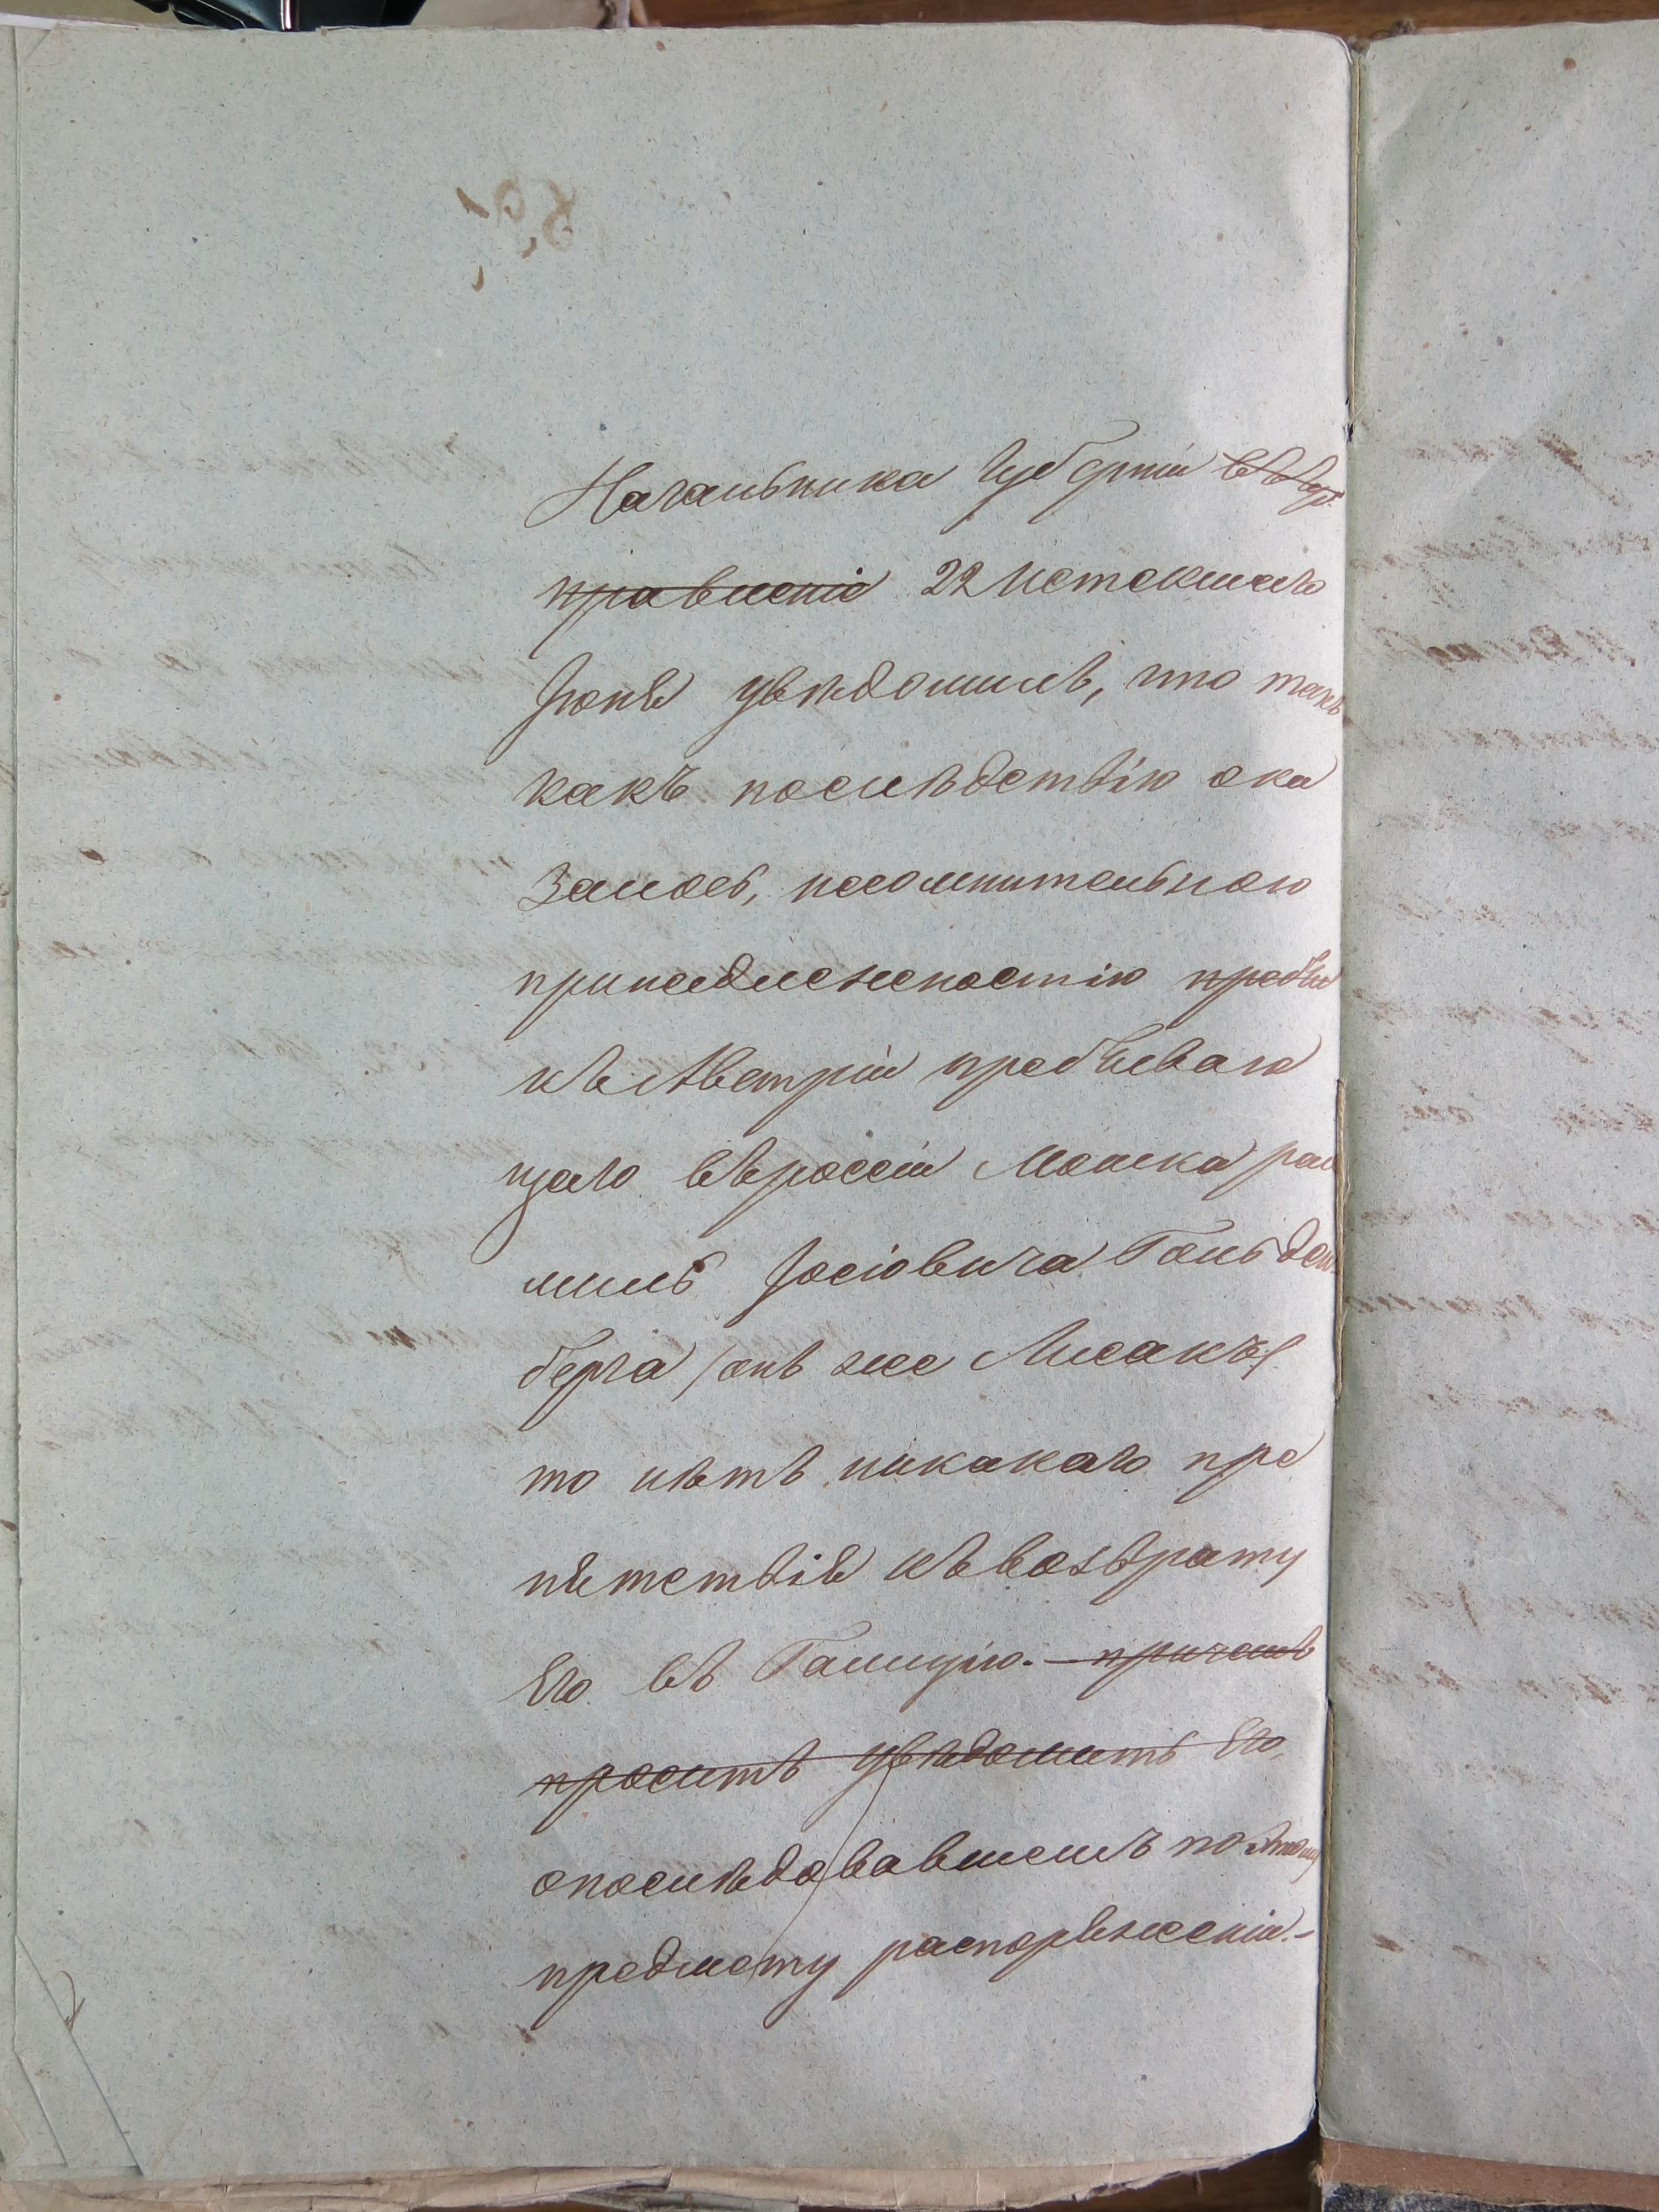 Начальника Губерніи
правленія 22 истекшаго
Іюня увѣдомилъ, что такъ
какъ послѣдствію ока
залось, несомнительною
принадлежностію пребы
къ Австріи пребываю
щаго въ россіи Мошка
миль Іосіовича Гольден
берга /онъ же Лисакъ/
то нѣтъ никакаго пре
пятствія къ возврату
Его въ Галицію. – причемъ
проситъ увѣдомить Его,
опослѣдовавшемъ по этому
предмету распоряженіи.–